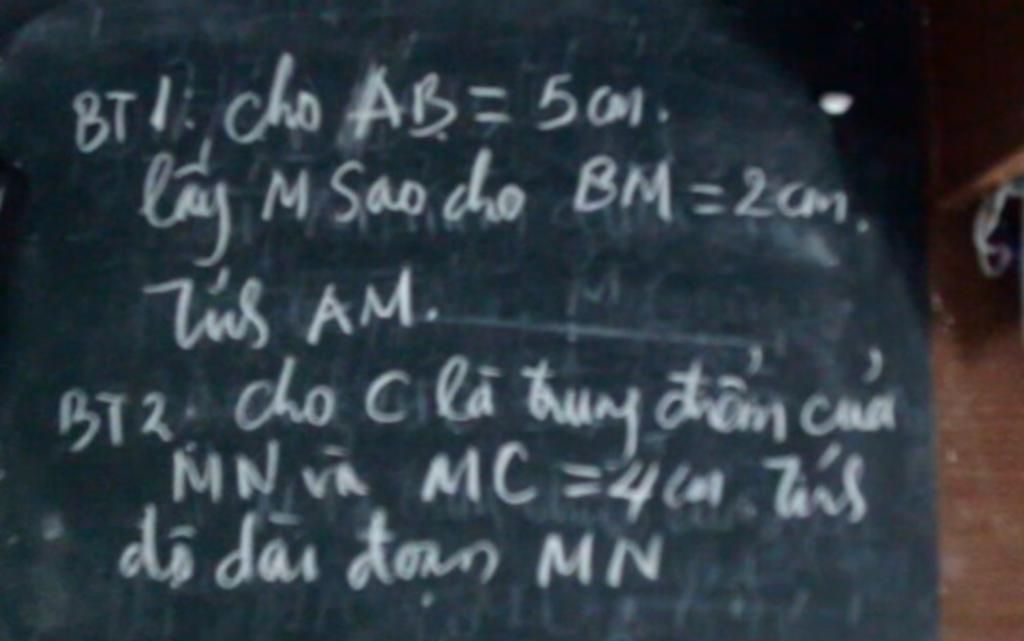 BT1: cho AB = 5cm.
lấy M sao cho BM = 2cm.
Tính AM.
BT2: cho C là trung điểm của
MN và MC = 4cm. Tính
độ dài đoạn MN